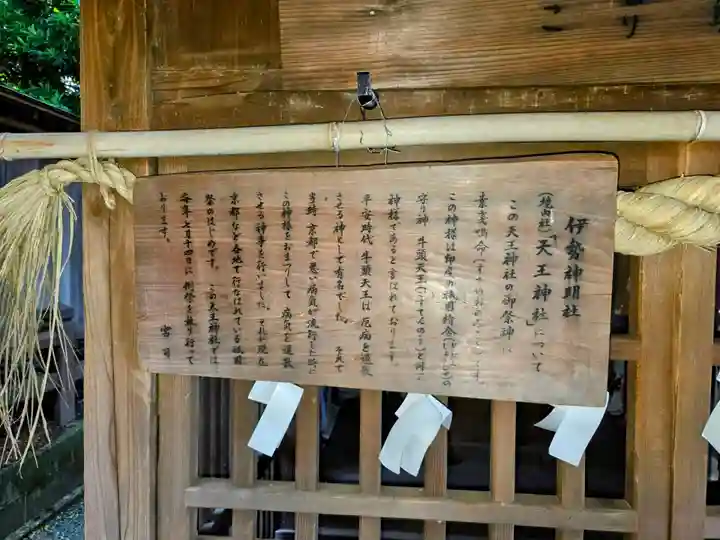 伊勢神明社
(境内社)「天王神社」について
この天王神社の御祭神は
素戔嗚命(すさのおのみこと)です。
この神様は印度の祇園精舎(ぎおんしょうじゃ)の
守り神 牛頭天王(ごずてんのう)と同じ
神様であると言はれております。
平安時代 牛頭天王は 厄病を退散
させる神として有名でした。
当時 京都で悪い病気が流行した時に
この神様をおまつりして 病気を退散
させる神事を行いました。それが現在
京都など各地で行なはれている祇園
祭のはじめです。この天王神社では
毎年七月十四日に 例祭を執り行って
おります。
宮司